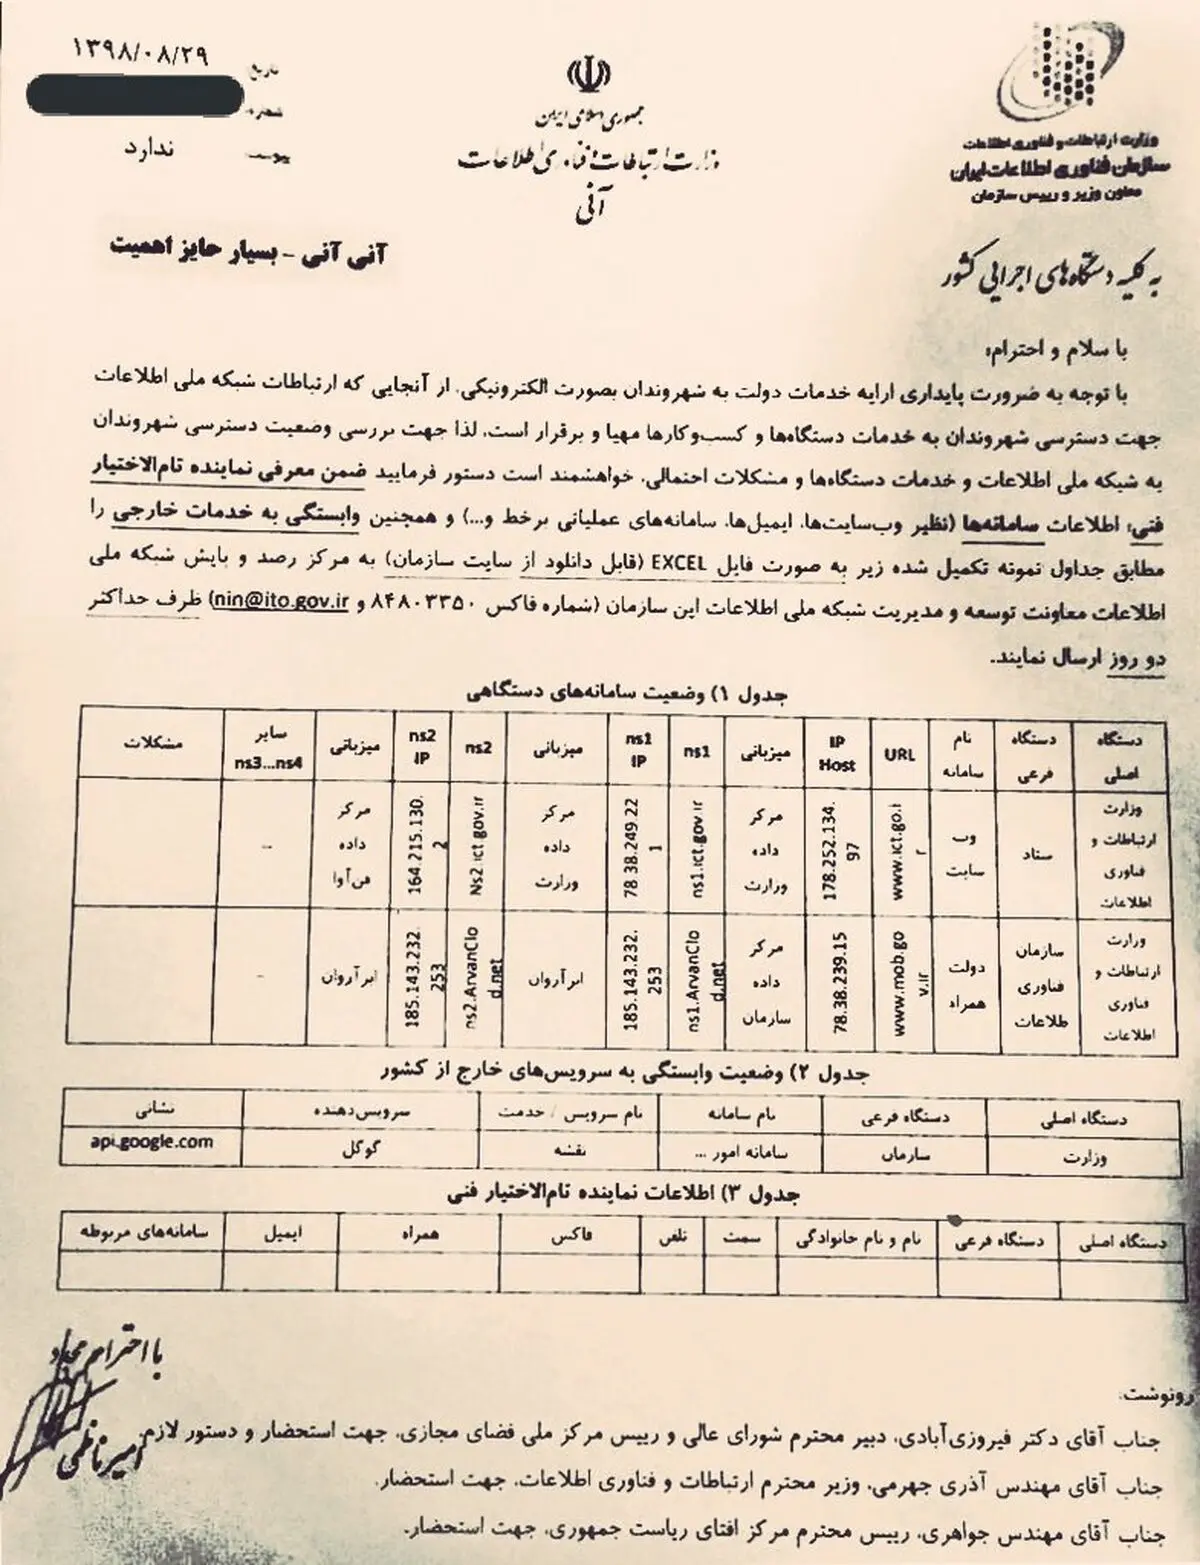 ۱۳۹۸/۰۸/۲۹
تاریخ
شماره
پیوست
ندارد
جمهوری اسلامی ایران
وزارت ارتباطات و فناوری اطلاعات
آنی
وزارت ارتباطات و فناوری اطلاعات
سازمان فناوری اطلاعات ایران
معاون وزیر و رییس سازمان
آنی آنی - بسیار حایز اهمیت
به کلیه دستگاه‌های اجرایی کشور
با سلام و احترام؛
با توجه به ضرورت پایداری ارایه خدمات دولت به شهروندان بصورت الکترونیکی، از آنجایی که ارتباطات شبکه ملی اطلاعات
جهت دسترسی شهروندان به خدمات دستگاه‌ها و کسب‌وکارها مهیا و برقرار است، لذا جهت بررسی وضعیت دسترسی شهروندان
به شبکه ملی اطلاعات و خدمات دستگاه‌ها و مشکلات احتمالی، خواهشمند است دستور فرمایید ضمن معرفی نماینده تام‌الاختیار
فنی؛ اطلاعات سامانه‌ها (نظیر وب‌سایت‌ها، ایمیل‌ها، سامانه‌های عملیاتی برخط و...) و همچنین وابستگی به خدمات خارجی را
مطابق جداول نمونه تکمیل شده زیر به صورت فایل EXCEL (قابل دانلود از سایت سازمان) به مرکز رصد و پایش شبکه ملی
اطلاعات معاونت توسعه و مدیریت شبکه ملی اطلاعات این سازمان (شماره فاکس ۸۴۸۰۳۳۵۰ و nin@ito.gov.ir) ظرف حداکثر
دو روز ارسال نمایند.
جدول ۱) وضعیت سامانه‌های دستگاهی
دستگاه اصلی | دستگاه فرعی | نام سامانه | URL | IP Host | میزبانی | ns1 | ns1 IP | میزبانی | ns2 | ns2 IP | میزبانی | سایر ns3...ns4 | مشکلات
وزارت ارتباطات و فناوری اطلاعات | ستاد | وب سایت | www.ict.go.ir | 178.252.134.97 | مرکز داده وزارت | ns1.ict.gov.ir | 78.38.249.221 | مرکز داده وزارت | Ns2.ict.gov.ir | 164.215.130.2 | مرکز داده فن‌آوا | -
وزارت ارتباطات و فناوری اطلاعات | سازمان فناوری طلاعات | دولت همراه | www.mob.gov.ir | 78.38.239.15 | مرکز داده سازمان | ns1.ArvanClod.net | 185.143.232.253 | ابر آروان | ns2.ArvanClod.net | 185.143.232.253 | ابر آروان | -
جدول ۲) وضعیت وابستگی به سرویس‌های خارج از کشور
دستگاه اصلی | دستگاه فرعی | نام سامانه | نام سرویس / خدمت | سرویس‌دهنده | نشانی
وزارت | سازمان | سامانه امور ... | نقشه | گوگل | api.google.com
جدول ۳) اطلاعات نماینده تام‌الاختیار فنی
دستگاه اصلی | دستگاه فرعی | نام و نام خانوادگی | سمت | تلفن | فاکس | همراه | ایمیل | سامانه‌های مربوطه
با احترام مجدد
امیر ناظمی
رونوشت:
جناب آقای دکتر فیروزی‌آبادی، دبیر محترم شورای عالی و رییس مرکز ملی فضای مجازی، جهت استحضار و دستور لازم.
جناب آقای مهندس آذری جهرمی، وزیر محترم ارتباطات و فناوری اطلاعات، جهت استحضار.
جناب آقای مهندس جواهری، رییس محترم مرکز افتای ریاست جمهوری، جهت استحضار.